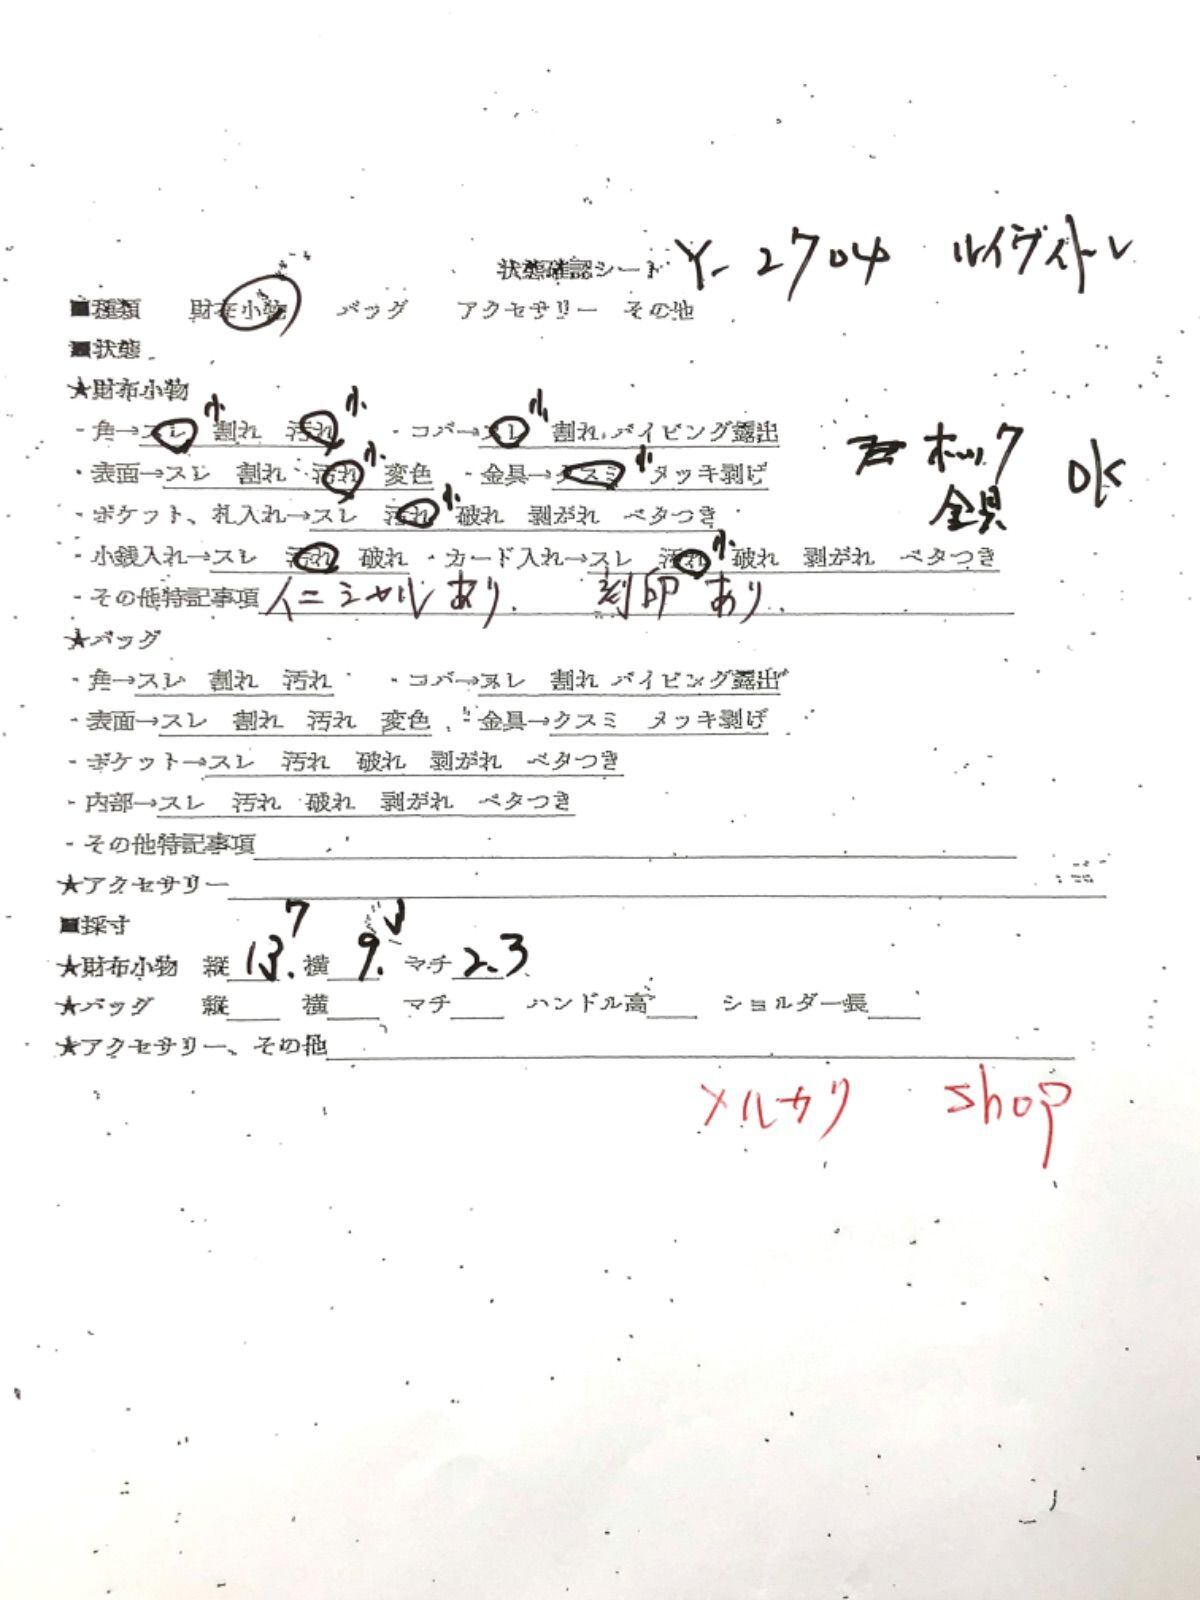 状態確認シート Y-2704 ルイヴィトン
■種類 財布小物 バッグ アクセサリー その他
■状態
★財布小物
・角→スレ小 割れ 汚れ小 ・コバ→スレ小 割れ パイピング露出
・表面→スレ 割れ 汚れ小 変色 ・金具→クスミ小 メッキ剥げ
ホック金具 OK
・ポケット、札入れ→スレ 汚れ小 破れ 剥がれ ベタつき
・小銭入れ→スレ 汚れ 破れ ・カード入れ→スレ 汚れ小 破れ 剥がれ ベタつき
・その他特記事項 イニシャルあり 刻印あり
★バッグ
・角→スレ 割れ 汚れ ・コバ→スレ 割れ パイピング露出
・表面→スレ 割れ 汚れ 変色 ・金具→クスミ メッキ剥げ
・ポケット→スレ 汚れ 破れ 剥がれ ベタつき
・内部→スレ 汚れ 破れ 剥がれ ベタつき
・その他特記事項
★アクセサリー
■採寸
★財布小物 縦 13.7 横 9. マチ 2.3
★バッグ 縦 横 マチ ハンドル高 ショルダー長
★アクセサリー、その他
メルカリ shop